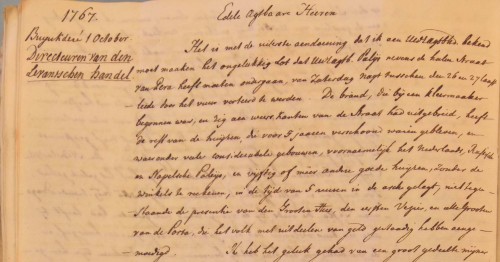 1767.
Buyukderé 1 October
Directeuren van den
Levantschen handel
Edele Agtbaare Heeren
Het is met de uiterste aandoening dat ik aan UwEdAgtb. bekend
moet maaken het ongelukkig Lot dat UwEdAgtb. Paleis nevens de halve Straat
van Pera heeft moeten ondergaan, van Zaturdag nagt tusschen den 26 en 27 laast
leede door het vuur verteert te werden. De brand, die bij een kleermaaker
begonnen was, en zig aan weerskanten van de Straat had uitgebreid, heeft
de rest van de huijzen, die voor 5 jaaren verschoond waaren gebleven, en
waar onder veele considerabele gebouwen, voornaamelijk het Nederlands, Russisch
en Napelsche Paleis, en vijftig of meer andere goede huijzen, zonder de
winkels te reekenen, in de tijd van 5 uuren in de asch gelegt, niet tegen
staande de presentie van den Grooten Heer, den eersten Vezier, en alle Grooten
van de Porta, die het volk met uitdeelen van geld gestaadig hebben aange-
moedigd. Ik heb het geluk gehad van een groot gedeelte mijner